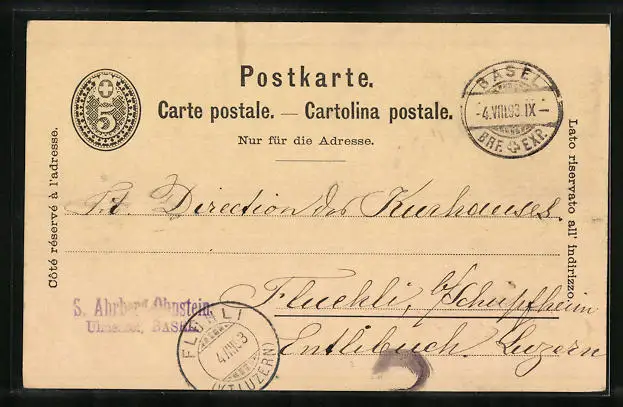 Postkarte.
Carte postale. — Cartolina postale.
Nur für die Adresse.
5
BASEL
-4.VIII.93.IX-
BRF. EXP.
Côté réservé à l'adresse.
Lato riservato all' indirizzo.
Direction des Kurhauses
Fluehli, b/Schüpfheim
Entlibuch. Luzern
S. Ahrberg-Ohnstein
BASEL
FLÜHLI
4 VIII 93
(KT. LUZERN)